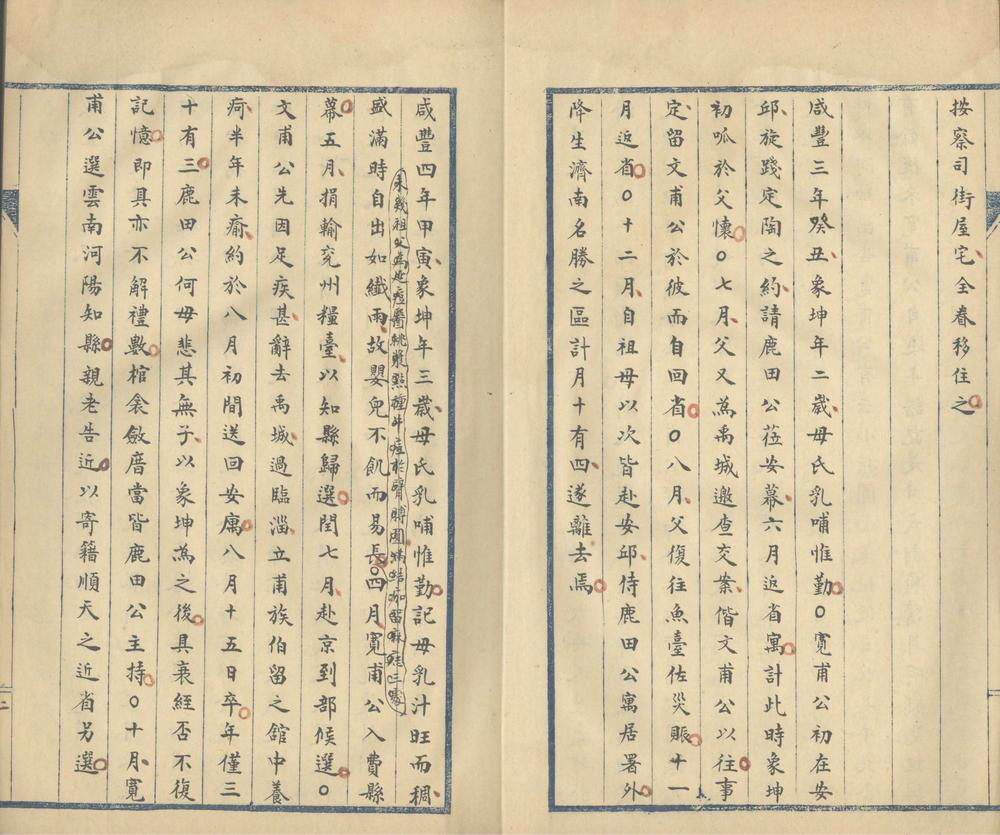 按察司街屋宅全眷移住之
咸豐三年癸丑象坤年二歲母氏乳哺惟勤○寬甫公初在安
邱旋踐定陶之約請鹿田公莅安幕六月返省寓計此時象坤
初呱於父懷○七月父又為禹城邀查交案偕文甫公以往事
定留文甫公於彼而自回省○八月父復往魚臺佐災賑十一
月返省○十二月自祖母以次皆赴安邱侍鹿田公寓居署外
降生濟南名勝之區計月十有四遂離去焉
咸豐四年甲寅象坤年三歲母氏乳哺惟勤記母乳汁旺而稠
承幾祖父為延痘醫挑漿點種牛痘於臂膊圓滿結痂留麻誌三處
盛滿時自出如纖雨故嬰兒不飢而易長○四月寬甫公入費縣
幕五月捐輸兗州糧臺以知縣歸選閏七月赴京到部候選○
文甫公先因足疾甚辭去禹城過臨淄立甫族伯留之館中養
疴半年未瘉約於八月初間送回安寓八月十五日卒年僅三
十有三鹿田公何母悲其無子以象坤為之後具衰絰否不復
記憶即具亦不解禮數棺衾斂厝當皆鹿田公主持○十月寬
甫公選雲南河陽知縣親老告近以寄籍順天之近省另選
二